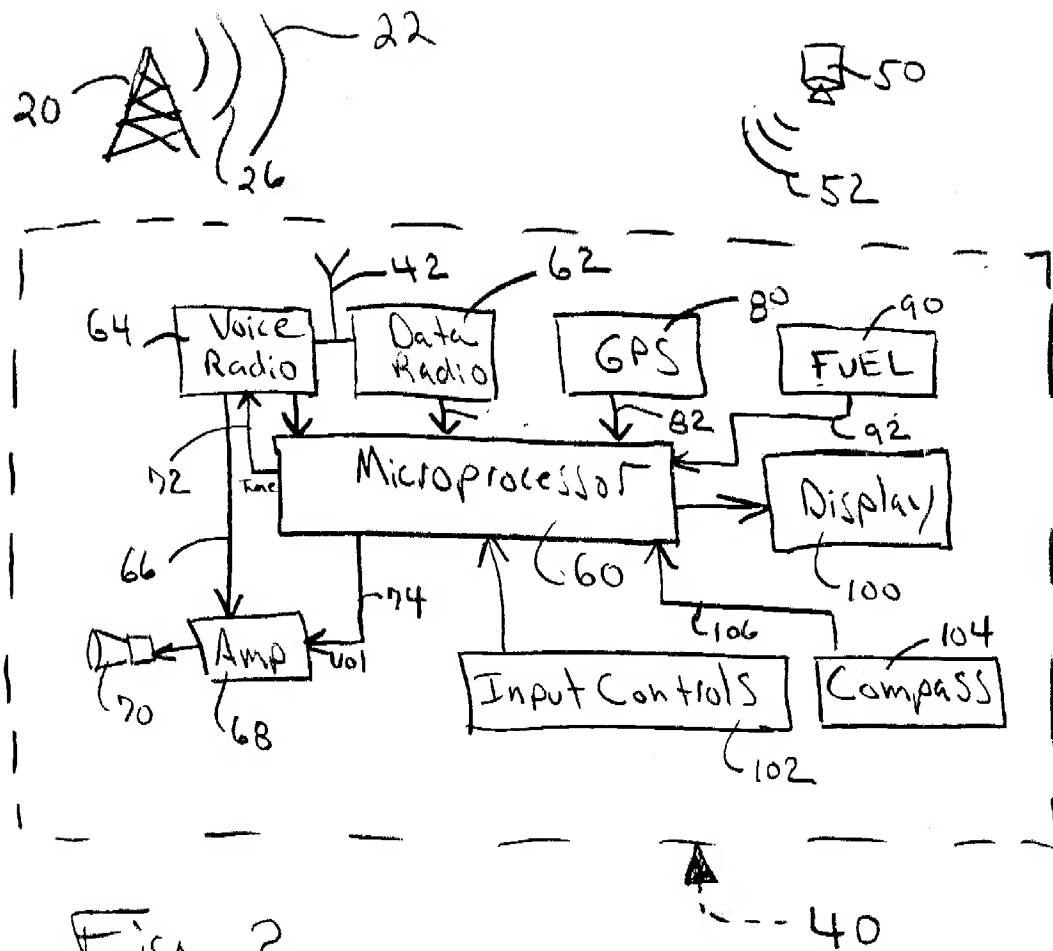 22
20
50
26
52
42
62
80
90
64
Voice
Radio
Data
Radio
GPS
FUEL
82
92
72
Tune
Microprocessor
Display
66
74
60
100
106
104
Amp
Vol
Input Controls
Compass
70
68
102
40
Fig. 2